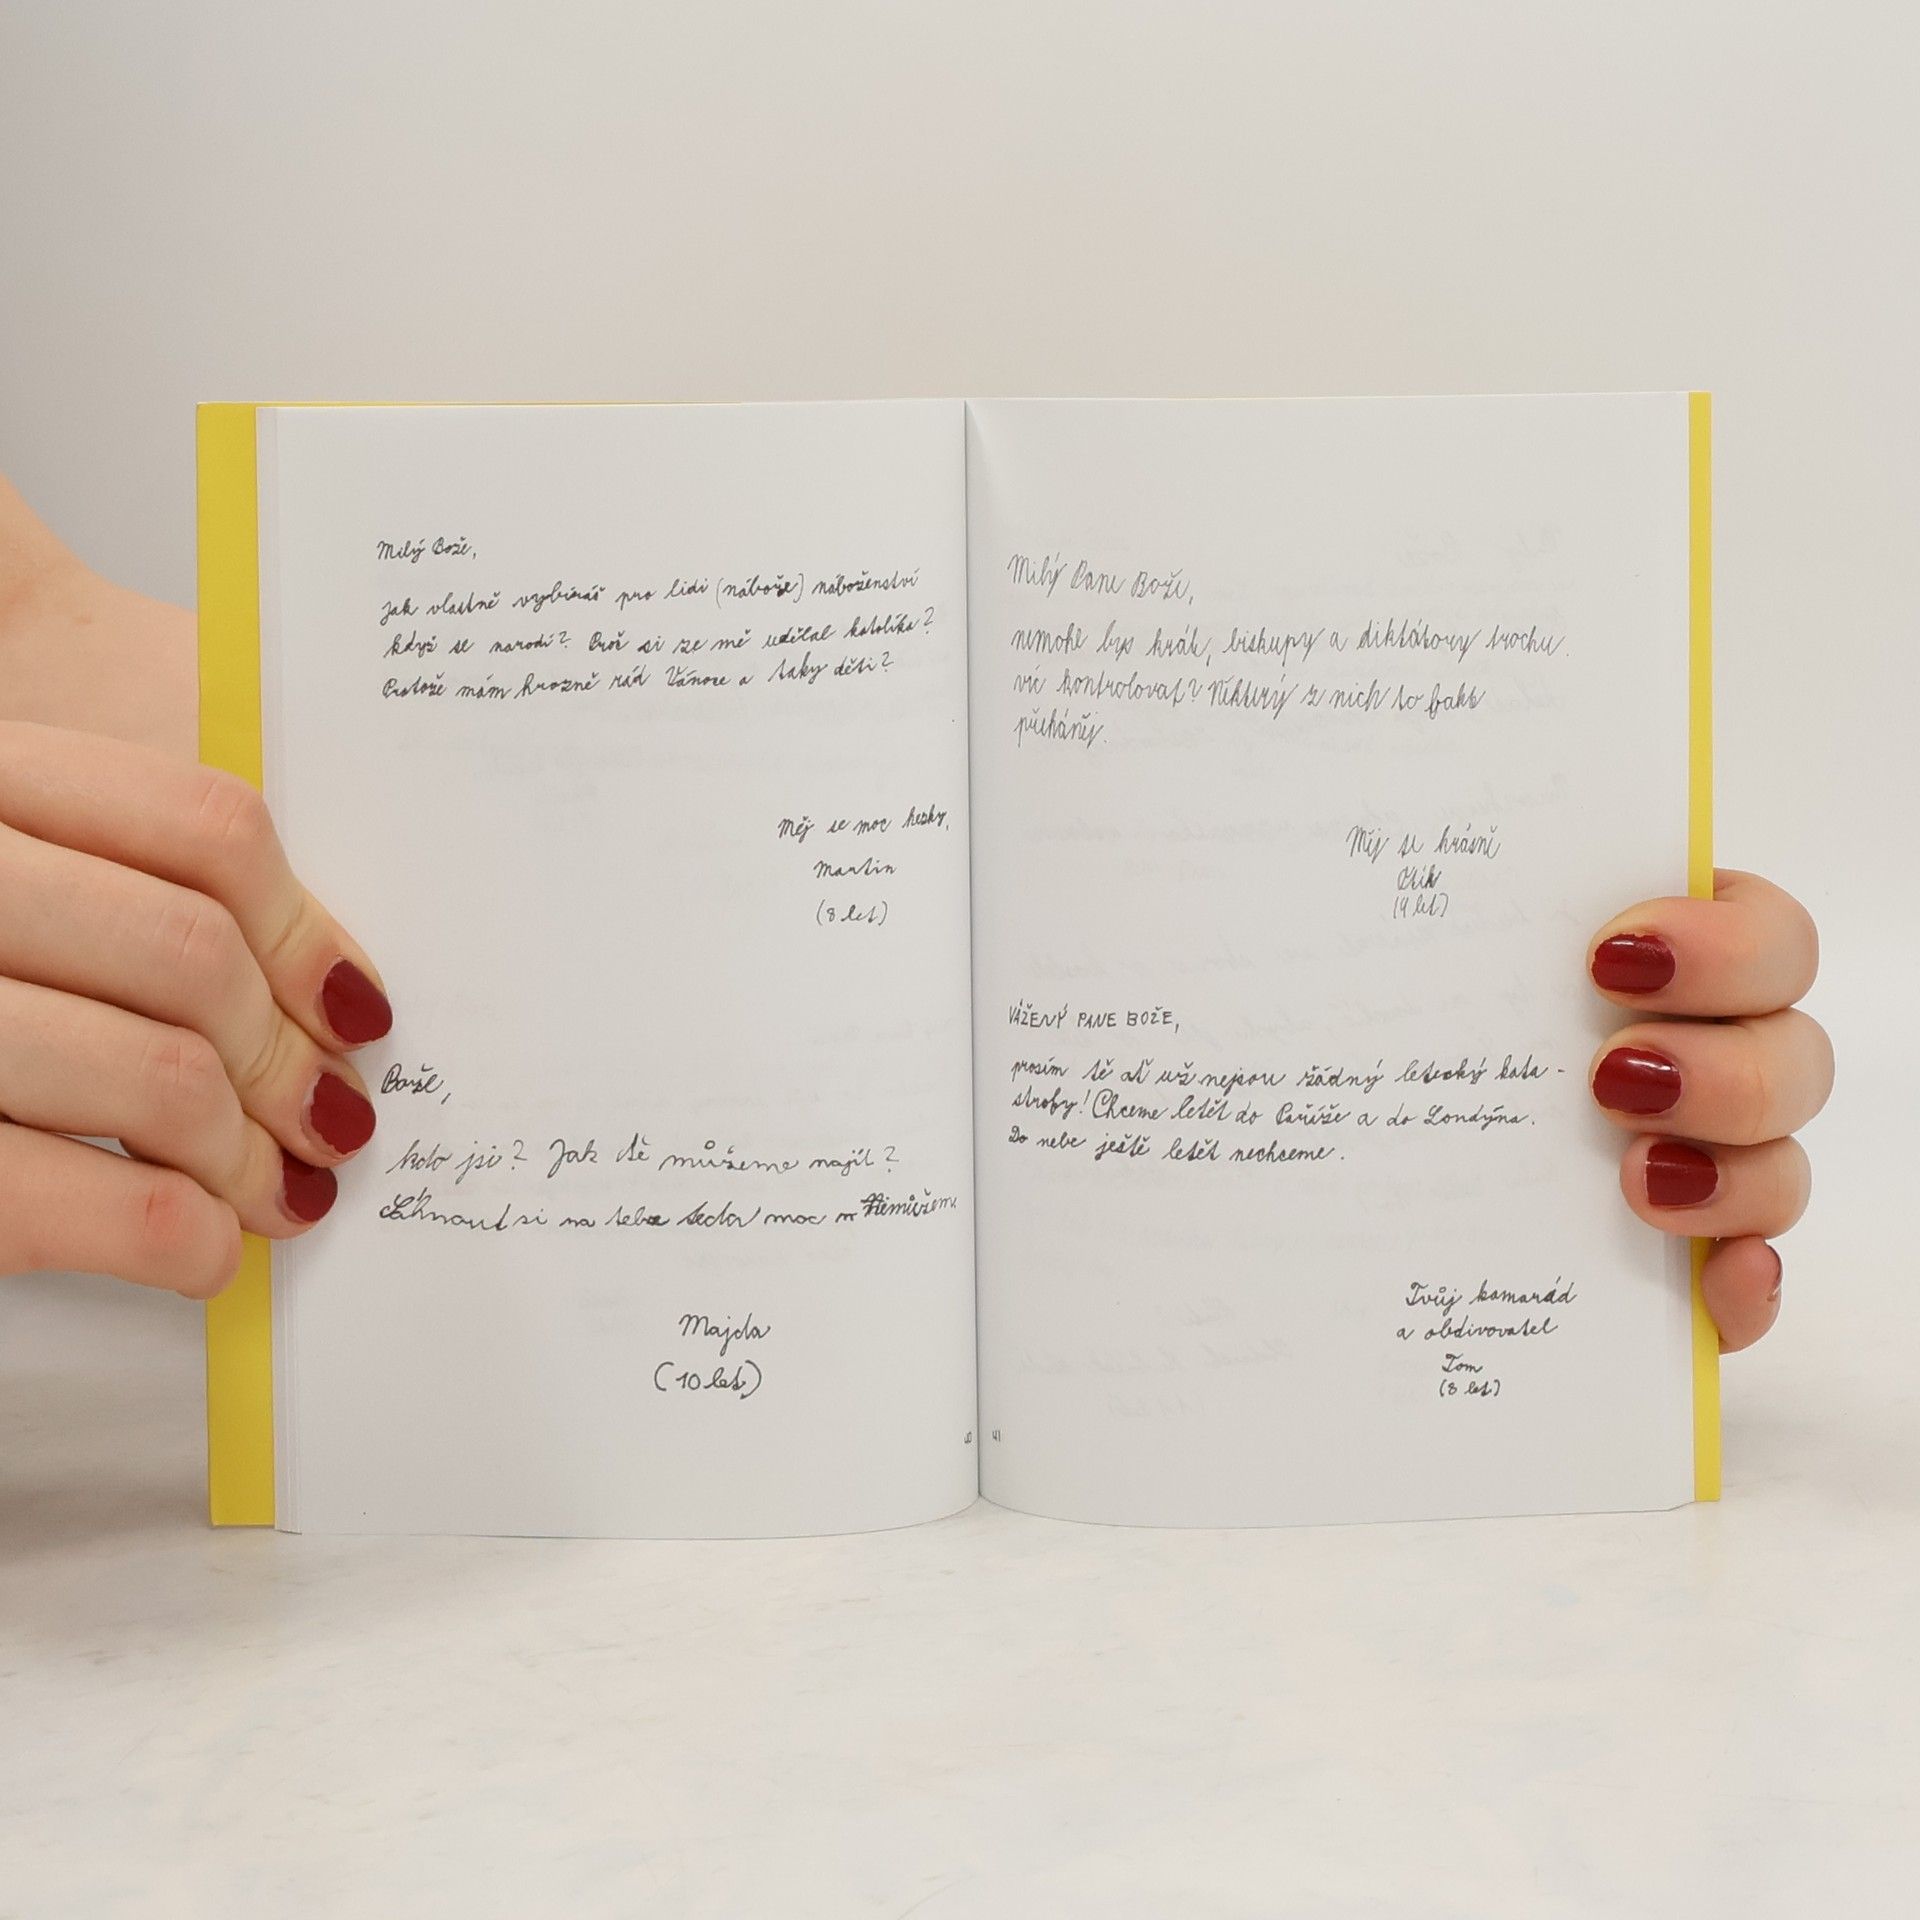 Milý Bože,
jak vlastně vybíráš pro lidi (nábože) náboženství
když se narodí? Proč si ze mě udělal katolíka?
Protože mám hrozně rád Vánoce a taky děti?
Měj se moc hezky,
Martin
(8 let)
Bože,
kdo jsi? Jak tě můžeme najít?
Sáhnout si na tebe teda moc n Nemůžem.
Majda
(10 let)
40
Milý Pane Bože,
nemohl bys krále, biskupy a diktátory trochu
víc kontrolovat? Některý z nich to fakt
přeháněj.
Měj se krásně
Otík
(9 let)
VÁŽENÝ PANE BOŽE,
prosím tě ať už nejsou žádný letecký kata-
strofy! Chceme letět do Paříže a do Londýna.
Do nebe ještě letět nechceme.
Tvůj kamarád
a obdivovatel
Tom
(8 let)
41